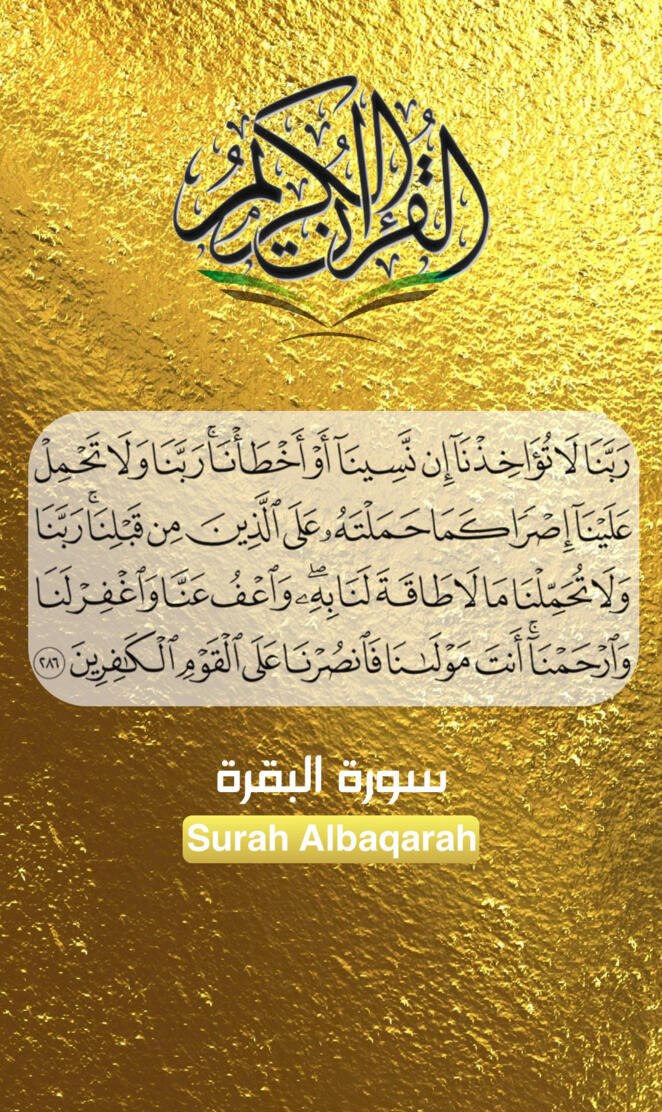 القرآن الكريم
رَبَّنَا لَا تُؤَاخِذْنَآ إِن نَّسِينَآ أَوْ أَخْطَأْنَا ۚ رَبَّنَا وَلَا تَحْمِلْ
عَلَيْنَآ إِصْرًا كَمَا حَمَلْتَهُۥ عَلَى ٱلَّذِينَ مِن قَبْلِنَا ۚ رَبَّنَا
وَلَا تُحَمِّلْنَا مَا لَا طَاقَةَ لَنَا بِهِۦ ۖ وَٱعْفُ عَنَّا وَٱغْفِرْ لَنَا
وَٱرْحَمْنَآ ۚ أَنتَ مَوْلَىٰنَا فَٱنصُرْنَا عَلَى ٱلْقَوْمِ ٱلْكَٰفِرِينَ ٢٨٦
سورة البقرة
Surah Albaqarah